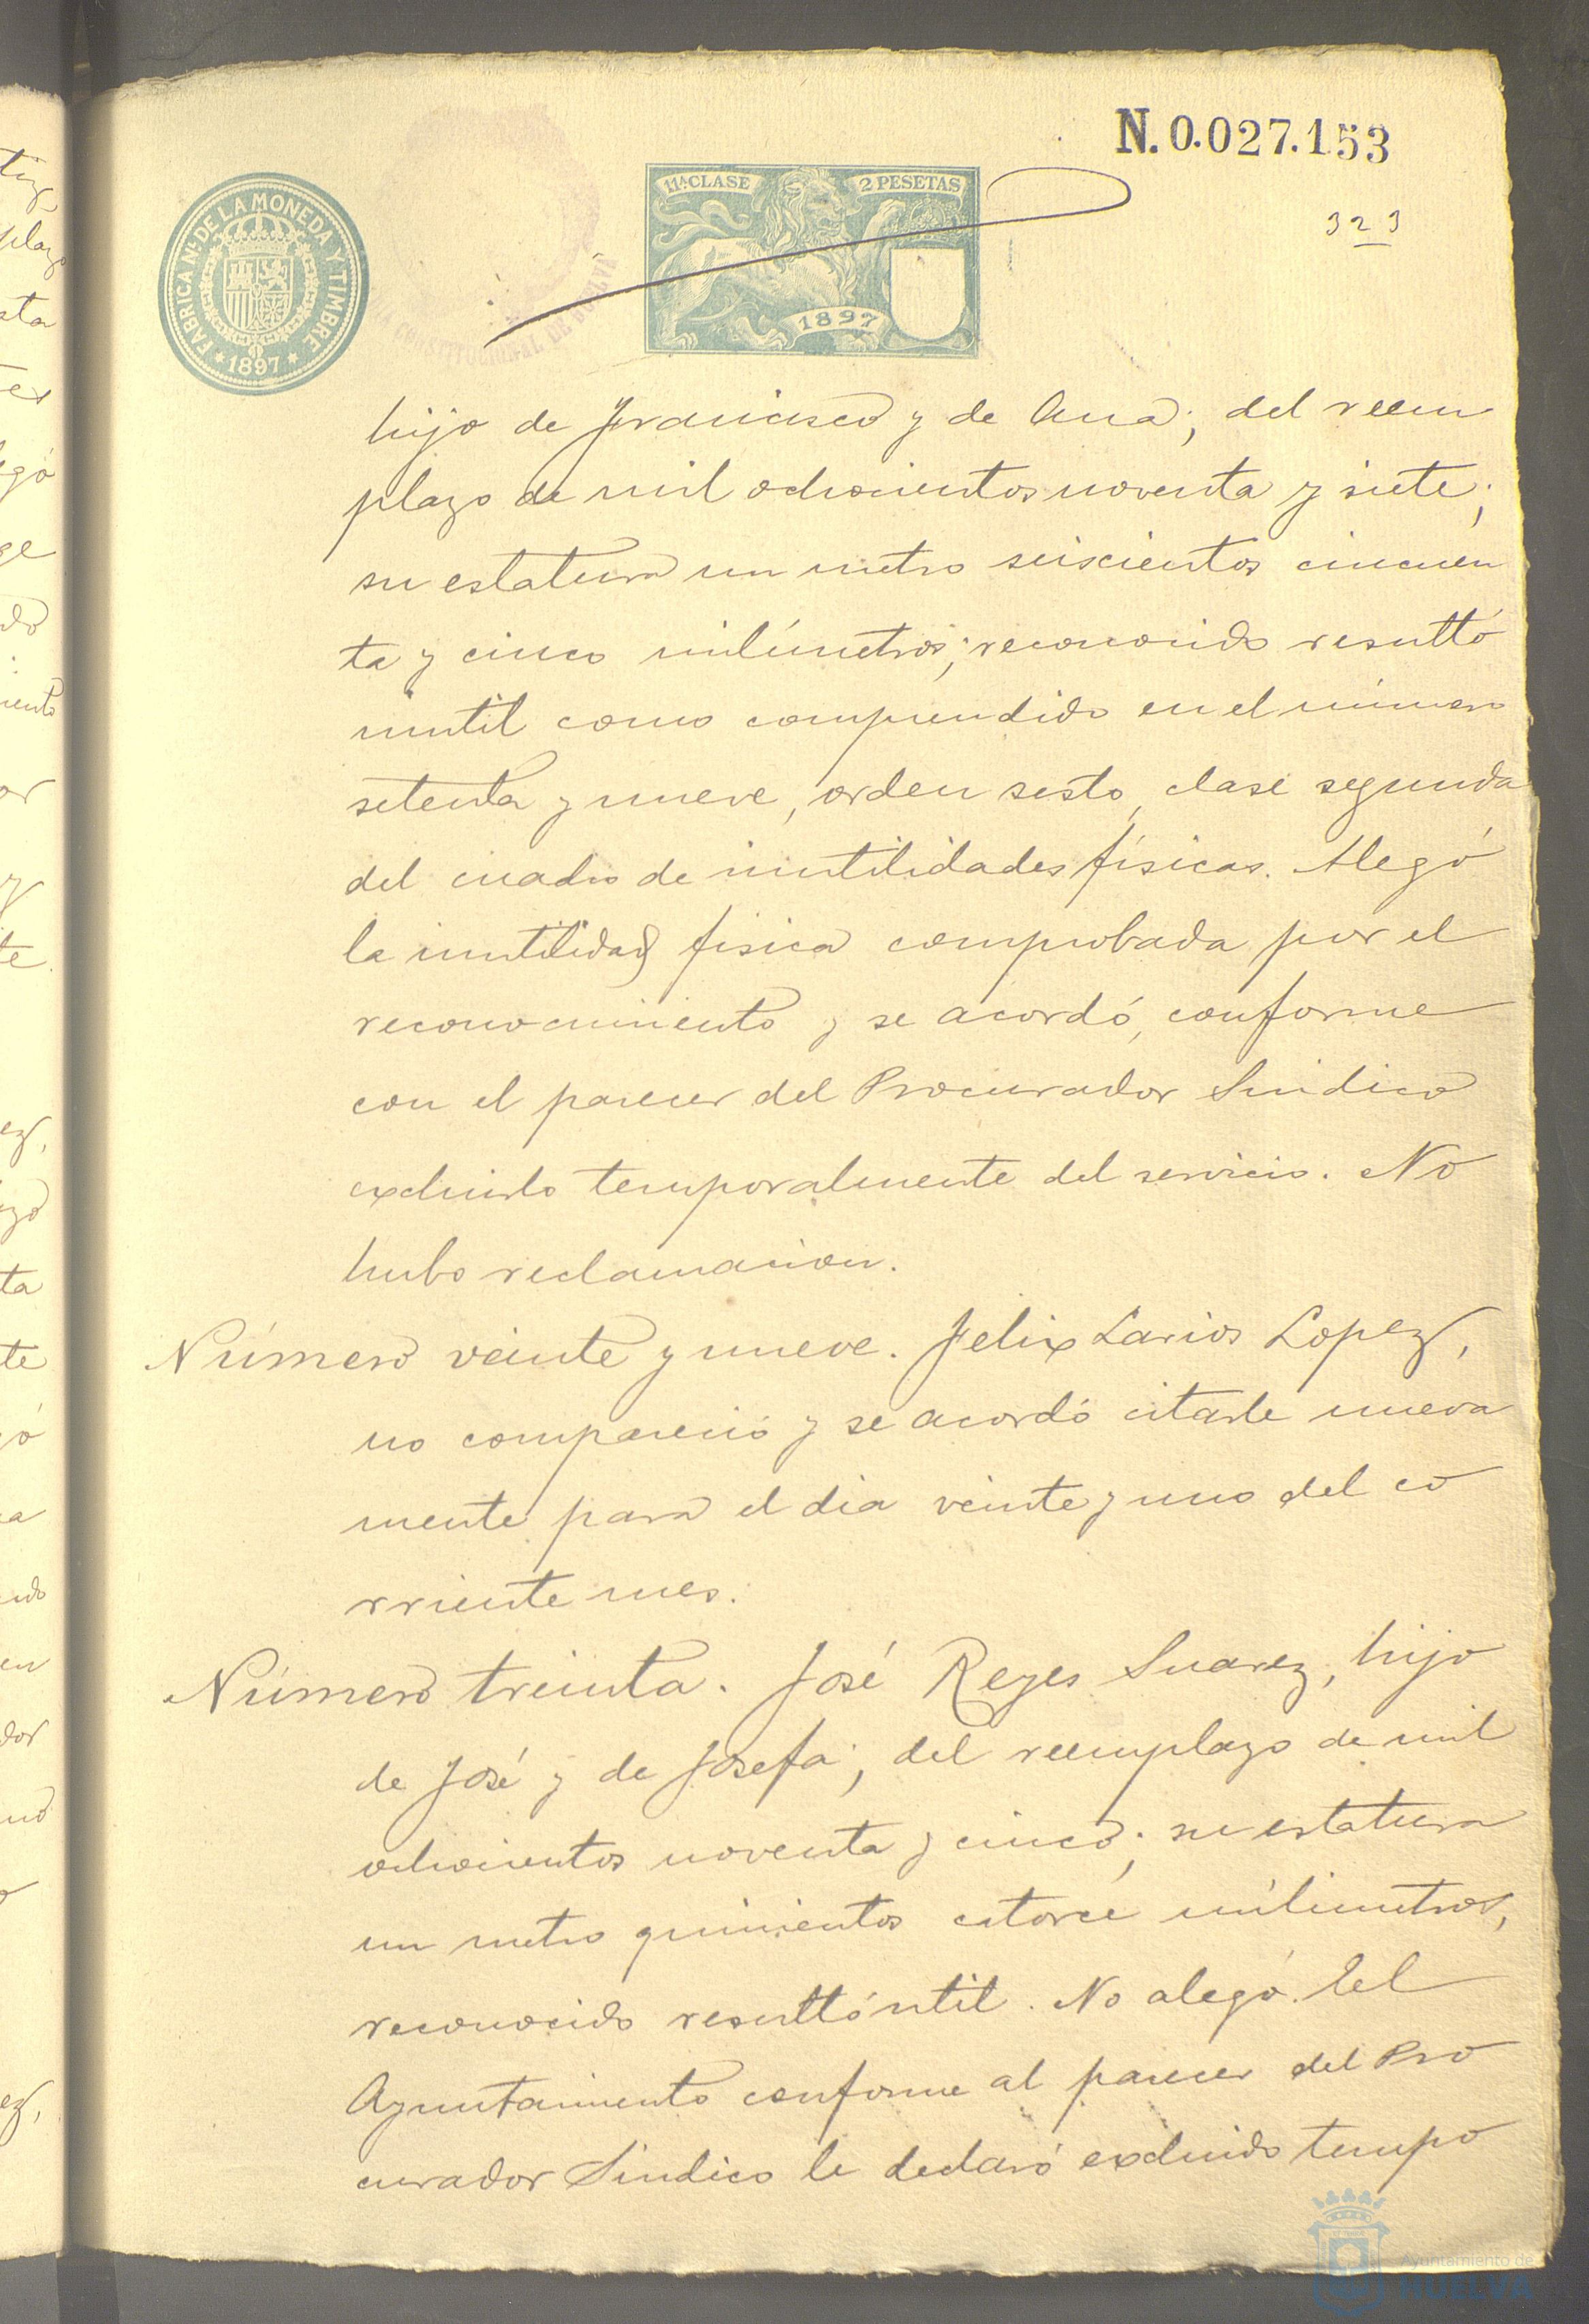 N. 0.027.153
323
11ª CLASE 2 PESETAS
1897
FÁBRICA NL. DE LA MONEDA Y TIMBRE
* 1897 *
CONSTITUCIONAL DE HUELVA
hijo de Francisco y de Ana; del reem
plazo de mil ochocientos noventa y siete;
su estatura un metro seiscientos cincuen
ta y cinco milímetros; reconocido resultó
inutil como comprendido en el número
setenta y nueve, orden sesto, clase segunda
del cuadro de inutilidades físicas. Alegó
la inutilidad fisica comprobada por el
reconocimiento y se acordó, conforme
con el parecer del Procurador Sindico
excluirlo temporalmente del servicio. No
hubo reclamacion.
Número veinte y nueve. Felix Larios Lopez,
no compareció y se acordó citarle nueva
mente para el dia veinte y uno del co
rriente mes.
Número treinta. José Reyes Suarez, hijo
de José y de Josefa; del reemplazo de mil
ochocientos noventa y cinco; su estatura
un metro quinientos catorce milímetros,
reconocido resultó útil. No alegó. El
Ayuntamiento conforme al parecer del Pro
curador Sindico le declaró excluido tempo
Ayuntamiento de
HUELVA